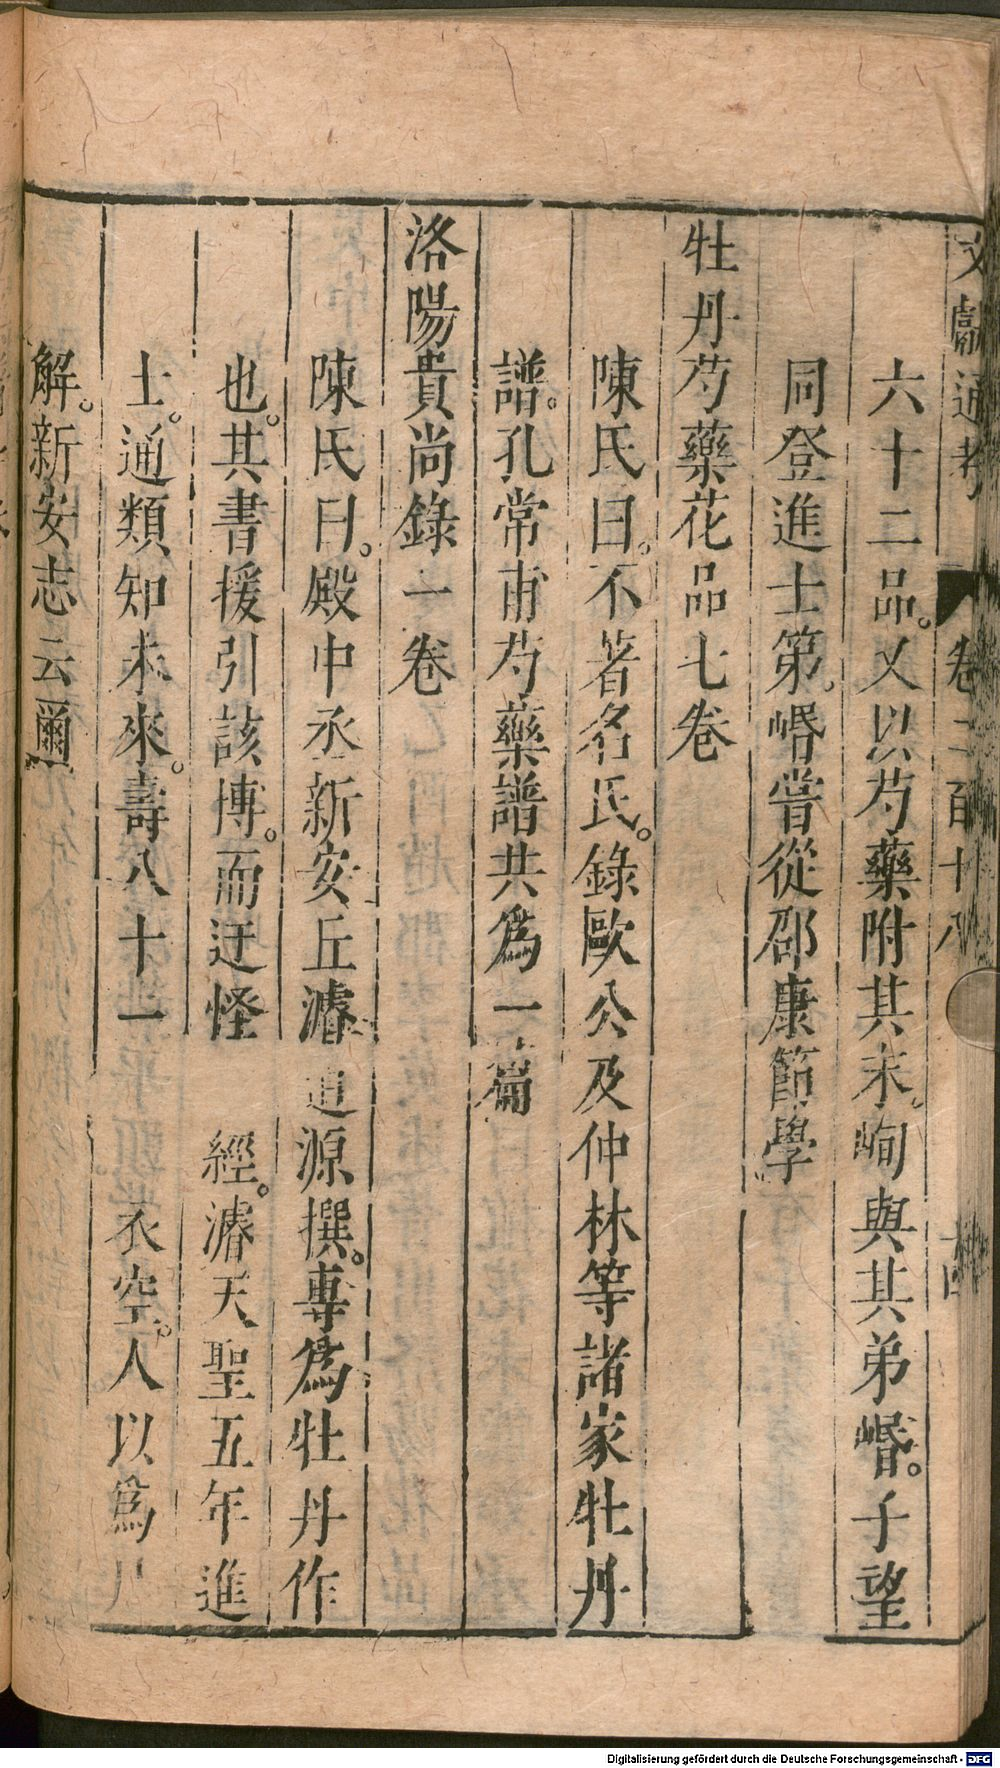 文獻通考 卷二百十八 十四
六十二品。又以芍藥附其末。峋與其弟㟭。子望
同登進士第。㟭嘗從邵康節學
牡丹芍藥花品七卷
陳氏曰。不著名氏。錄歐公及仲林等諸家牡丹
譜。孔常甫芍藥譜共爲一篇
洛陽貴尚錄一卷
陳氏曰。殿中丞新安丘濬道源撰。專爲牡丹作
也。其書援引該博。而迂怪 經。濬天聖五年進
士。通類知未來。壽八十一 衣空。人以爲尸
解。新安志云爾
Digitalisierung gefördert durch die Deutsche Forschungsgemeinschaft - DFG